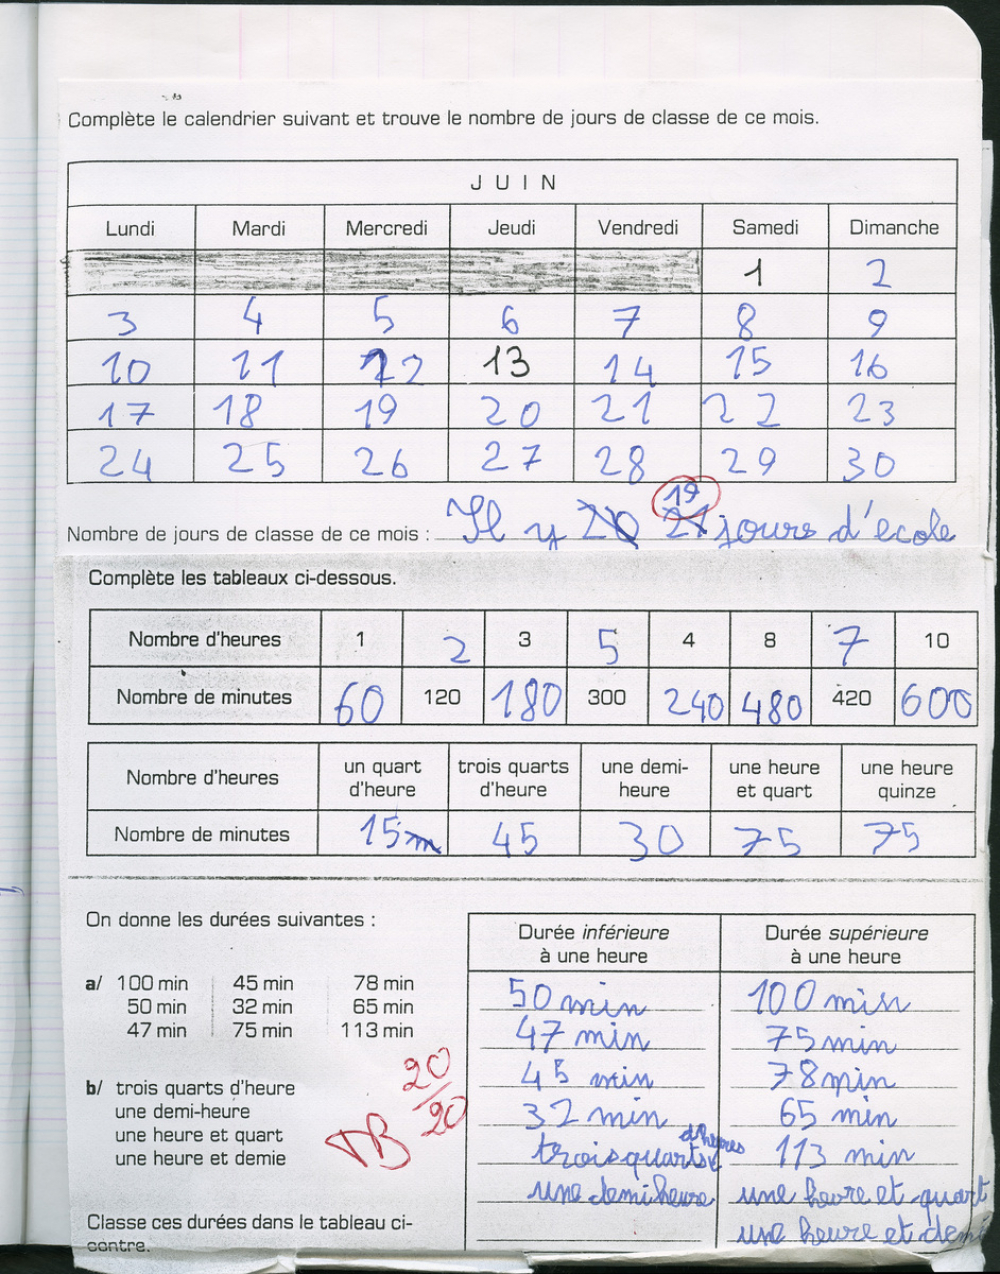 Complète le calendrier suivant et trouve le nombre de jours de classe de ce mois.
JUIN
Lundi Mardi Mercredi Jeudi Vendredi Samedi Dimanche
1 2
3 4 5 6 7 8 9
10 11 12 13 14 15 16
17 18 19 20 21 22 23
24 25 26 27 28 29 30
19
Nombre de jours de classe de ce mois : Il y 20 21 jours d'école
Complète les tableaux ci-dessous.
Nombre d'heures 1 2 3 5 4 8 7 10
Nombre de minutes 60 120 180 300 240 480 420 600
Nombre d'heures un quart d'heure trois quarts d'heure une demi-heure une heure et quart une heure quinze
Nombre de minutes 15m 45 30 75 75
On donne les durées suivantes :
a/ 100 min 45 min 78 min
50 min 32 min 65 min
47 min 75 min 113 min
b/ trois quarts d'heure
une demi-heure
une heure et quart
une heure et demie
20/20
TB
Classe ces durées dans le tableau ci-
contre.
Durée inférieure à une heure Durée supérieure à une heure
50 min 100 min
47 min 75 min
45 min 78 min
32 min 65 min
trois quarts d'heures 113 min
une demi heure une heure et quart
une heure et demi